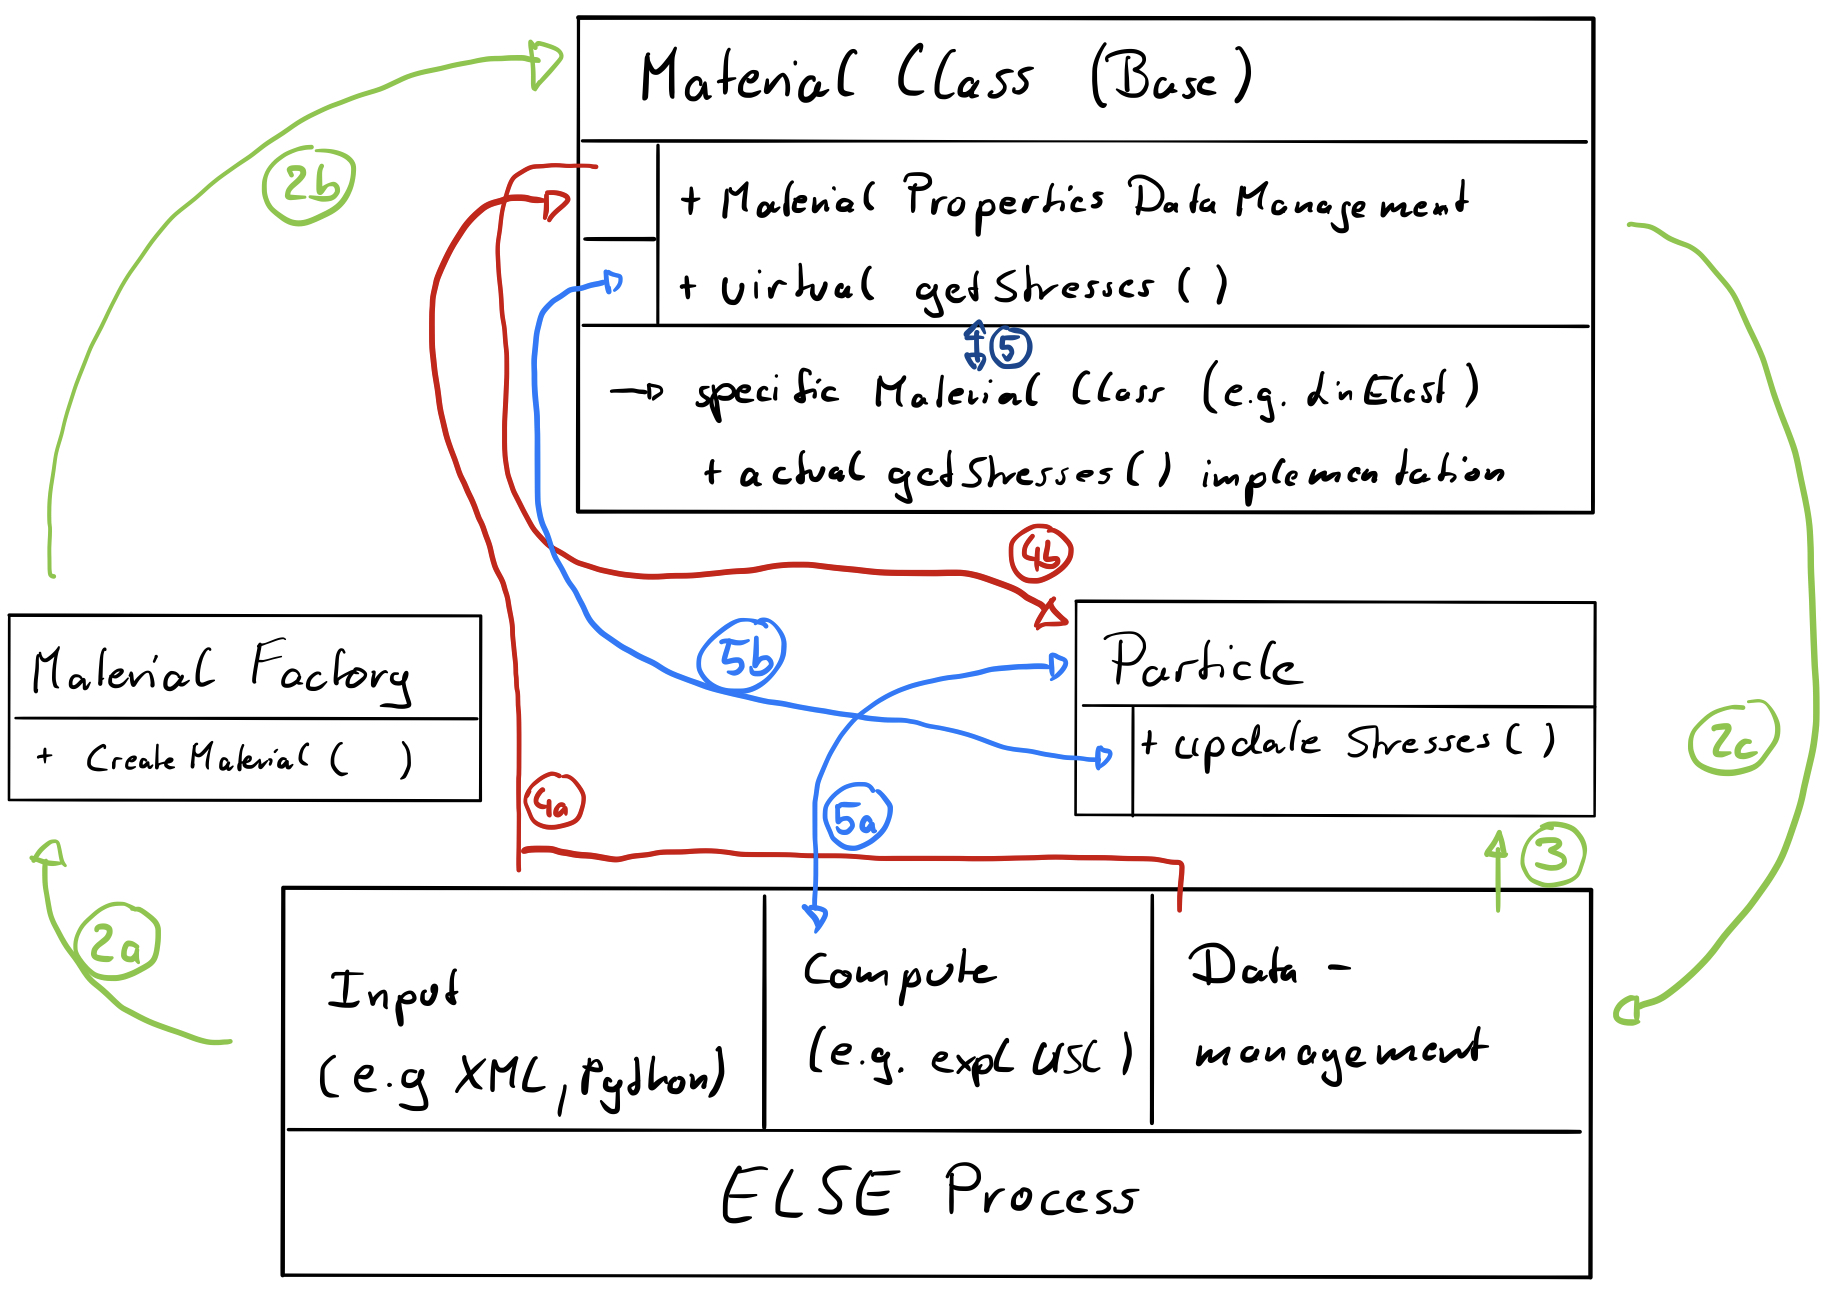 Material Class (Base)
2b
+ Material Properties Data Management
+ virtual getStresses ( )
5
→ specific Material Class (e.g. LinElast)
+ actual getStresses ( ) implementation
4b
Material Factory
+ Create Material ( )
5b
Particle
+ update Stresses ( )
2c
4a
5a
3
2a
Input
(e.g XML, Python)
Compute
(e.g. expl USL)
Data -
management
ELSE Process